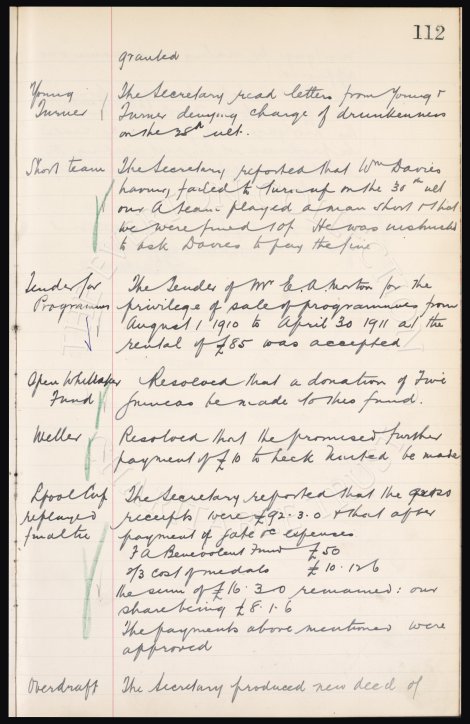 112
granted
Young & Turner
The Secretary read letters from Young &
Turner denying charge of drunkenness
on the 28th ult.
Short team
The Secretary reported that Wm Davies
having failed to turn up on the 30th ult
our A team played a man short & that
we were fined 10/. He was instructed
to ask Davies to pay the fine
Tender for
Programmes
The Tender of Mr E. A. Morton for the
privilege of sale of programmes from
August 1 1910 to April 30 1911 at the
rental of £85 was accepted
Whittaker
Fund
Resolved that a donation of Five
guineas be made to this fund.
Weller
Resolved that the promised further
payment of £10 to be made
Lpool Cup
replayed
final tie
The Secretary reported that the gross
receipts were £92.3.0 & that after
payment of gate &c expenses
F A Benevolent Fund £50
2/3 cost of medals £10.12.6
the sum of £16.3.0 remained: our
share being £8.1.6
The payments above mentioned were
approved
Overdraft
The Secretary produced new deed of